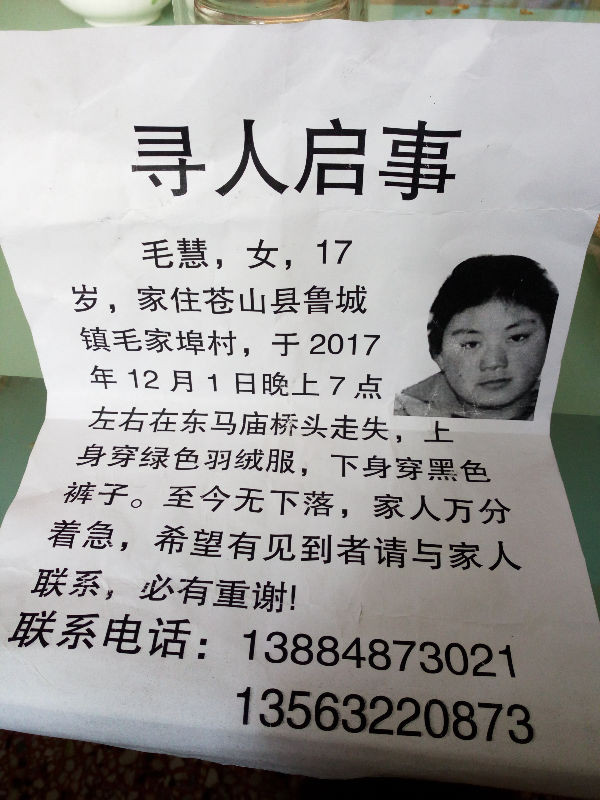 寻人启事
毛慧，女，17
岁，家住苍山县鲁城
镇毛家埠村，于 2017
年 12 月 1 日晚上 7 点
左右在东马庙桥头走失，上
身穿绿色羽绒服，下身穿黑色
裤子。至今无下落，家人万分
着急，希望有见到者请与家人
联系，必有重谢!
联系电话：13884873021
13563220873